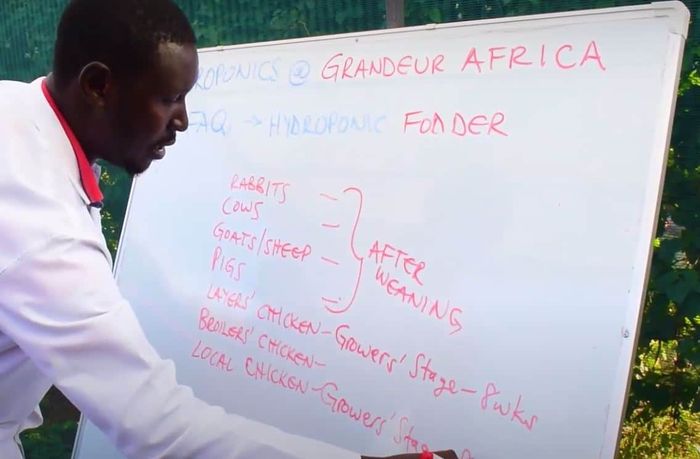 ROPONICS @ GRANDEUR AFRICA
FAQ → HYDROPONIC FODDER
RABBITS –
COWS –
GOATS/SHEEP –
PIGS =
AFTER WEANING
LAYERS' CHICKEN – GROWERS' STAGE – 8WKS
BROILERS' CHICKEN –
LOCAL CHICKEN – GROWERS' STAGE